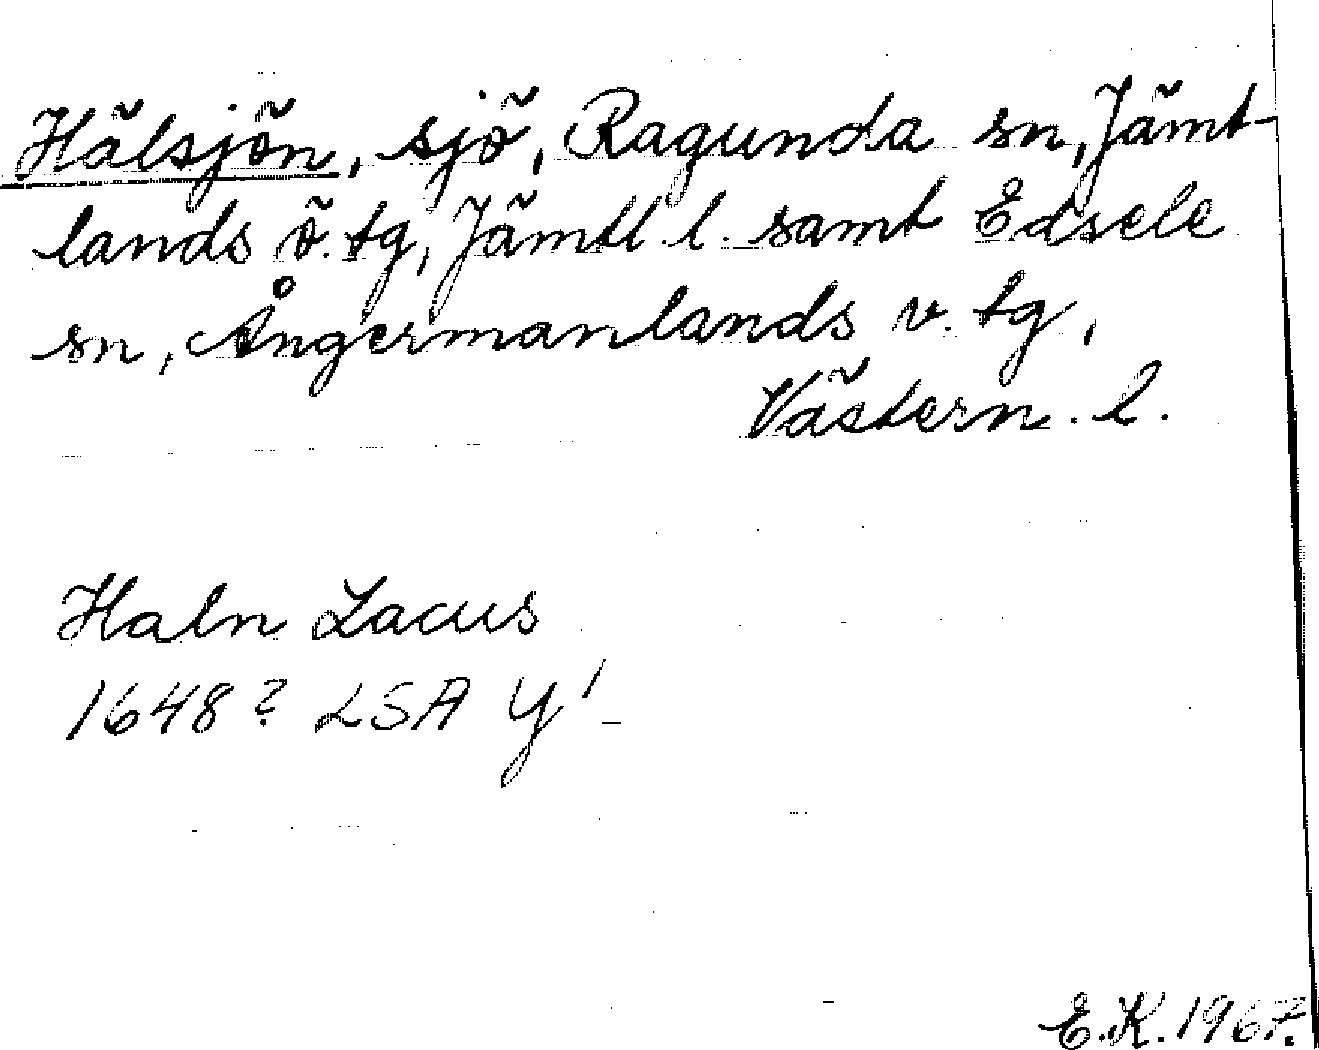 Hälsjön, sjö, Ragunda sn, Jämt-
lands ö. tg, Jämtl l. samt Edsele
sn, Ångermanlands v. tg,
Västern. l.
Haln Lacus
1648? LSA Y1
E.K. 1967.